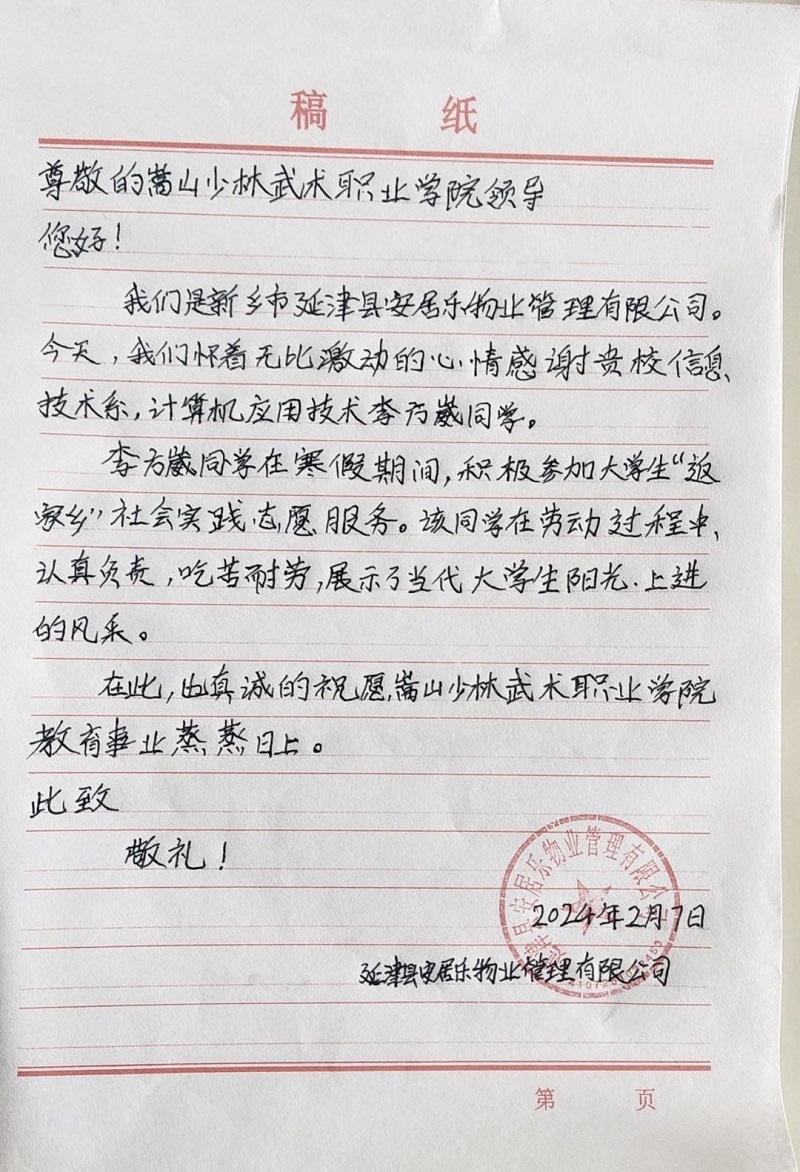 稿 纸
尊敬的嵩山少林武术职业学院领导
您好！
我们是新乡市延津县安居乐物业管理有限公司。
今天，我们怀着无比激动的心情感谢贵校信息
技术系，计算机应用技术李方崴同学。
李方崴同学在寒假期间，积极参加大学生“返
家乡”社会实践志愿服务。该同学在劳动过程中、
认真负责，吃苦耐劳，展示了当代大学生阳光、上进
的风采。
在此，也真诚的祝愿，嵩山少林武术职业学院
教育事业蒸蒸日上。
此致
敬礼！
延津县安居乐物业管理有限公司
2024年2月7日
延津县安居乐物业管理有限公司
第 页